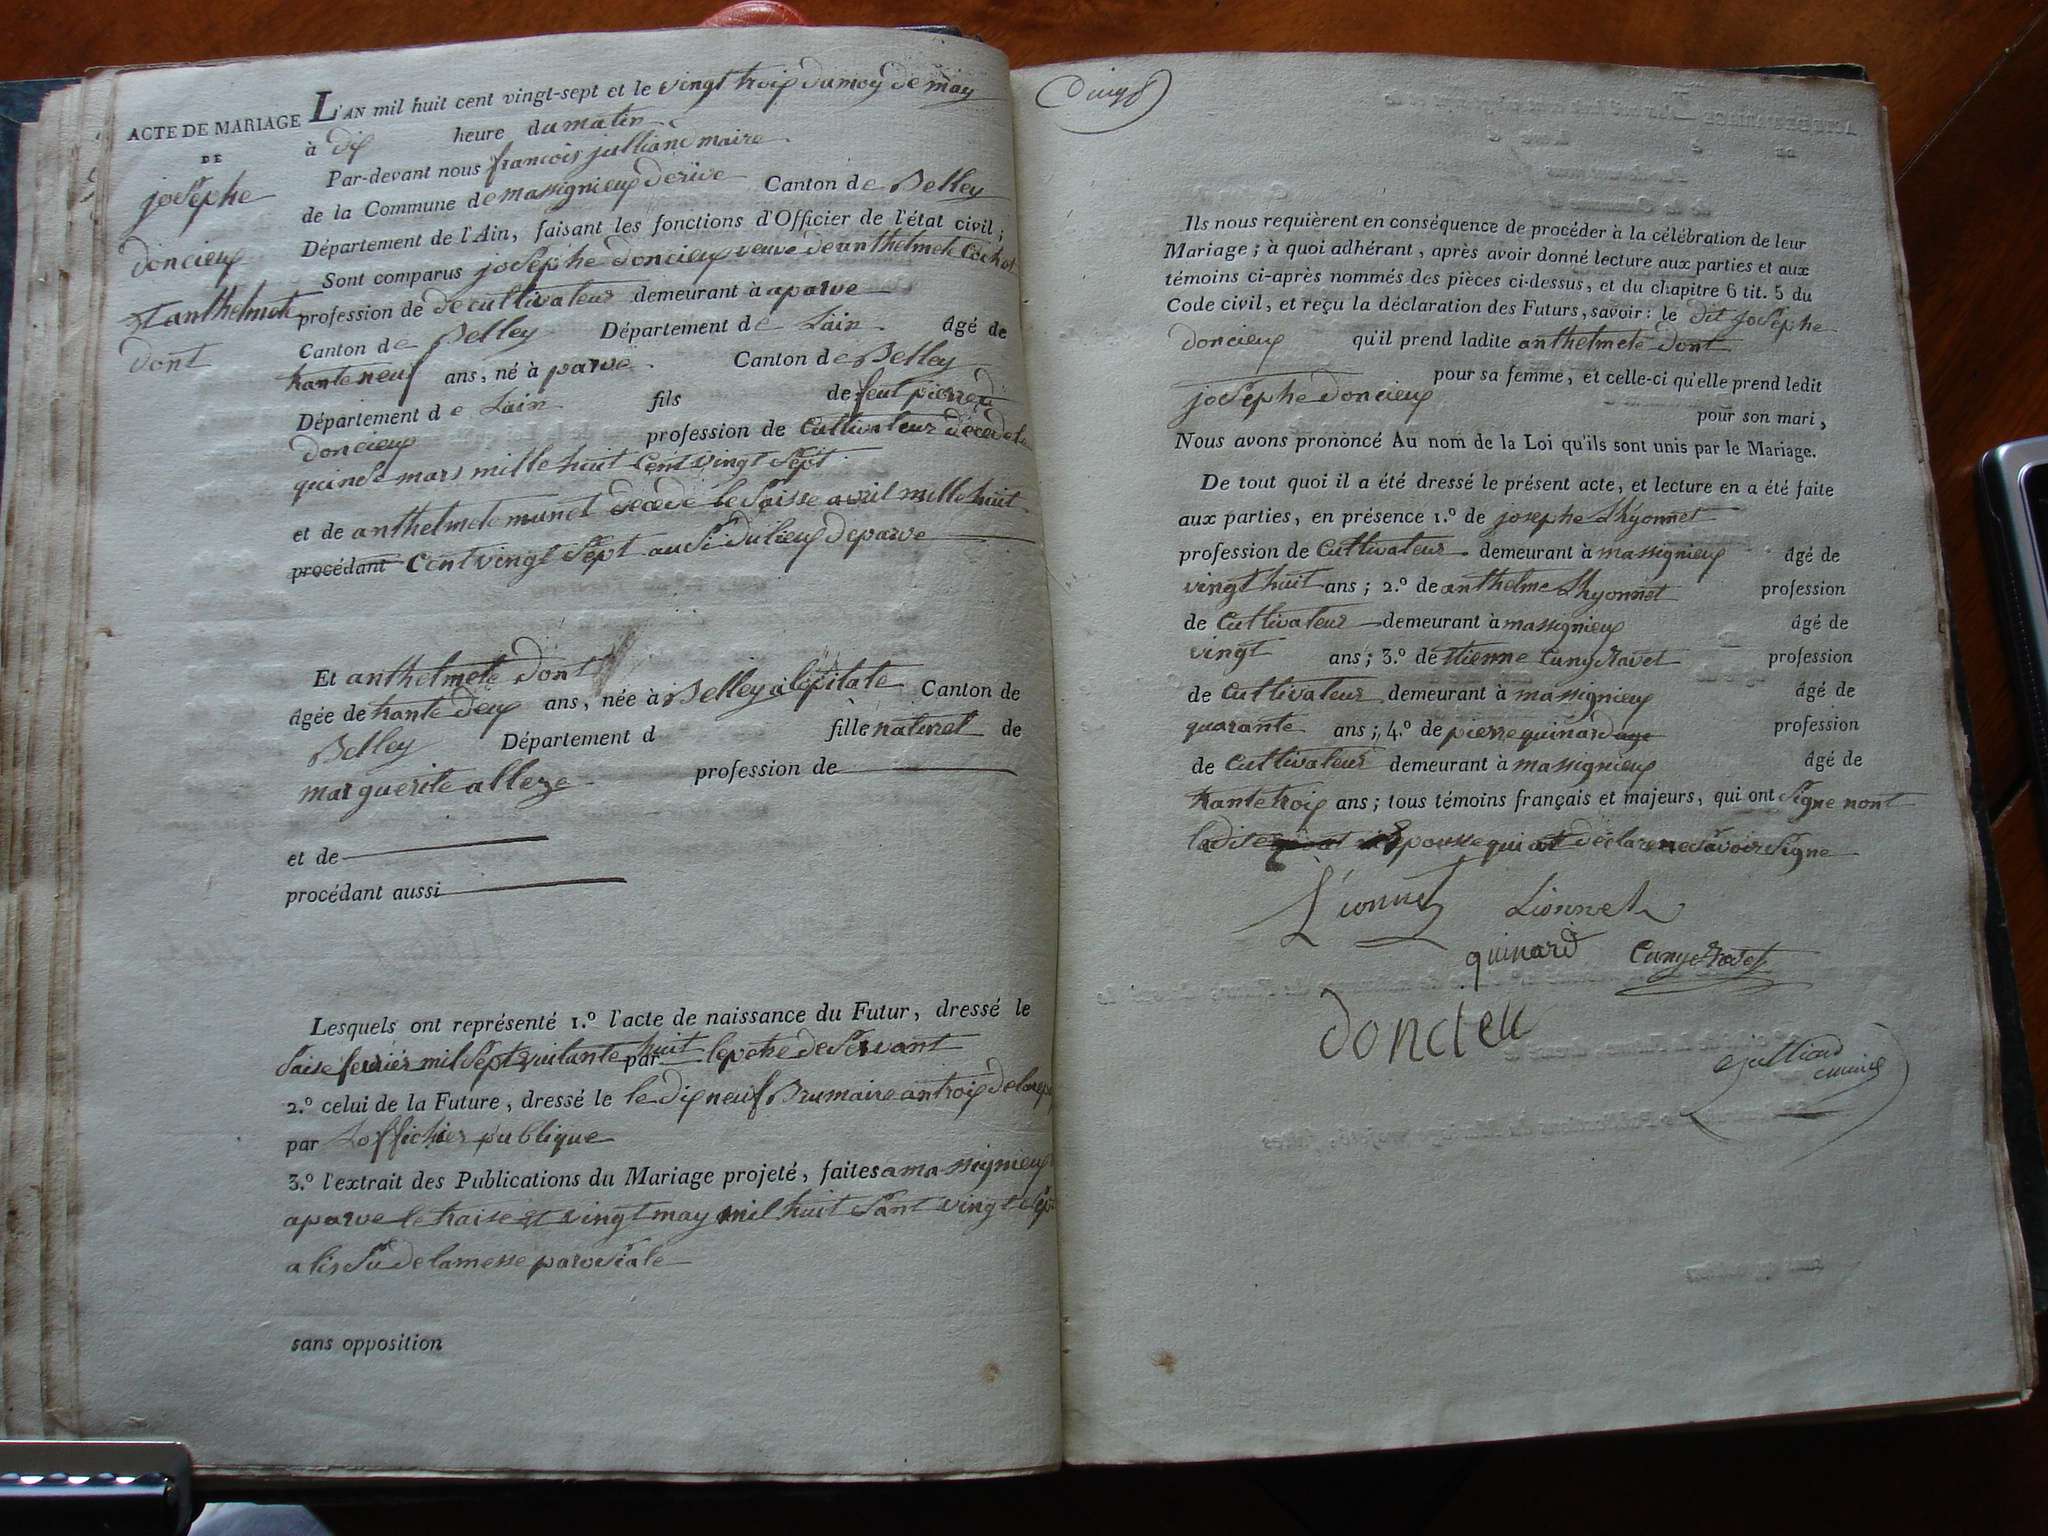 ACTE DE MARIAGE
DE
joséphe
doncieux
et anthelmete
dont
L'AN mil huit cent vingt-sept et le vingt trois du moy de may
à dix heure du matin
Par-devant nous francois julliand maire
de la Commune de massignieux de rive Canton de Belley
Département de l'Ain, faisant les fonctions d'Officier de l'état civil;
Sont comparus joséphe doncieux veuve de anthelmete Cochot
profession de de cultivateur demeurant à a parve
Canton de Belley Département de Lain âgé de
trante neuf ans, né à parve Canton de Belley
Département de Lain fils de feut pierre
doncieux profession de Cultivateur décédé le
quinse mars mille huit Cent vingt sept
et de anthelmete munet décédé le saisse avril mille huit
procédant Cent vingt sept ausi du lieux de parve
Et anthelmete dont
âgée de trante deux ans, née à Belley a lopitale Canton de
Belley Département d fille naturel de
marguerite alleze profession de
et de
procédant aussi
Lesquels ont représenté 1.º l'acte de naissance du Futur, dressé le
saise fevrier mil sept huitante huit par le petre de servant
2.º celui de la Future, dressé le le dix neuf Brumaire an trois de la rep
par Loffichier publique
3.º l'extrait des Publications du Mariage projeté, faites a massignieux
a parve le traise et vingt may mil huit sant vingt sept
a lissu de la messe parosiale
sans opposition
Ils nous requièrent en conséquence de procéder à la célébration de leur
Mariage; à quoi adhérant, après avoir donné lecture aux parties et aux
témoins ci-après nommés des pièces ci-dessus, et du chapitre 6 tit. 5 du
Code civil, et reçu la déclaration des Futurs, savoir: le dit joséphe
doncieux qu'il prend ladite anthelmete dont
pour sa femme, et celle-ci qu'elle prend ledit
joséphe doncieux pour son mari,
Nous avons prononcé Au nom de la Loi qu'ils sont unis par le Mariage.
De tout quoi il a été dressé le présent acte, et lecture en a été faite
aux parties, en présence 1.º de josephe Lhyonnet
profession de Cultivateur demeurant à massignieux âgé de
vingt huit ans; 2.º de anthelme Lhyonnet profession
de Cultivateur demeurant à massignieux âgé de
vingt ans; 3.º de etienne Cunyravet profession
de Cultivateur demeurant à massignieux âgé de
quarante ans; 4.º de pierre quinard profession
de Cultivateur demeurant à massignieux âgé de
trante trois ans; tous témoins français et majeurs, qui ont signe nont
ladite Epousse qui a déclare ne savoir signe
Lionnet Lionnet
quinard Cunyravet
doncieu
julliand
maire